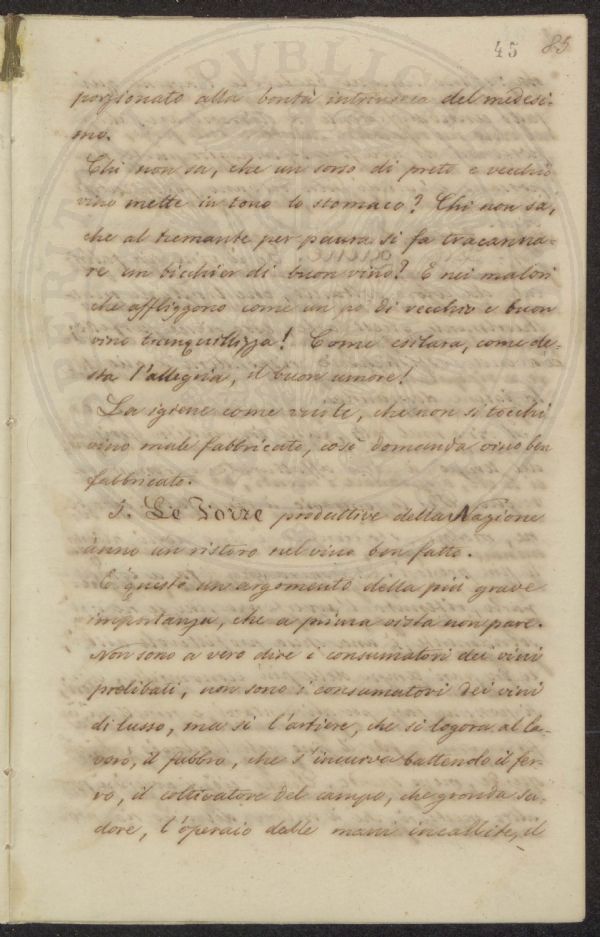 45 85
porzionato alla bontà intrinseca del medesi-
mo.
Chi non sa, che un sorso di preto e vecchio
vino mette in tono lo stomaco? Chi non sa,
che al tremante per paura si fa tracanna-
re un bicchier di buon vino? E nei malori
che affliggono come un po di vecchio e buon
vino tranquillizza! Come esilara, come de-
sta l'allegria, il buon umore!
La igiene come vuole, che non si tocchi
vino male fabbricato, così domanda vino ben
fabbricato.
Le Forze produttive della Nazione
ànno un ristoro nel vino ben fatto.
È questo un argomento della più grave
importanza, che a prima vista non pare.
Non sono a vero dire i consumatori dei vini
prelibati, non sono i consumatori dei vini
di lusso, ma sì l'artiere, che si logora al la-
voro, il fabbro, che s'incurva battendo il fer-
ro, il coltivatore del campo, che gronda su-
dore, l'operaio dalle mani incallite, il